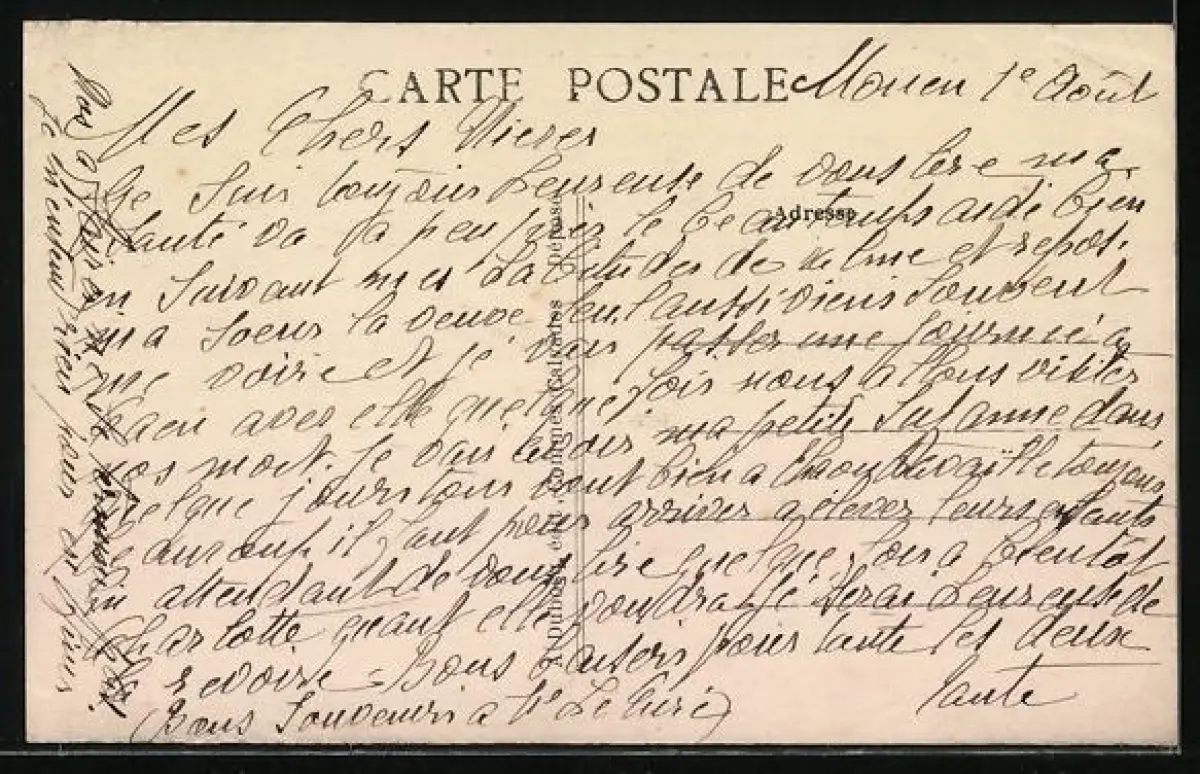 CARTE POSTALE
Mouen 1e Août
Mes Chers Nieces
Je suis toujour heureuse de vous lire ma
Adresse
santé va a peu près le beau temps aide bien
en suivant mes habitudes de calme et repos.
ma soeur la veuve seul aussi viens souvent
me voire et je vais passer une journée a
Caen avec elle quelque fois nous allons visiter
nos mort. Je vais avoir ma petite Suzanne dans
quelque jours tous vont bien a travaille toujours
beaucoup il faut pour arriver a élever leurs enfants
en attendant de vous lire quelque fois a bientôt
Charlotte quant elle voudra je serai heureuse de
la revoire - Bons baisers pour toute les deux
Tante
(Bons Souvenirs a Mr Le Curé)
pas a
je m'ennui pour ces jours